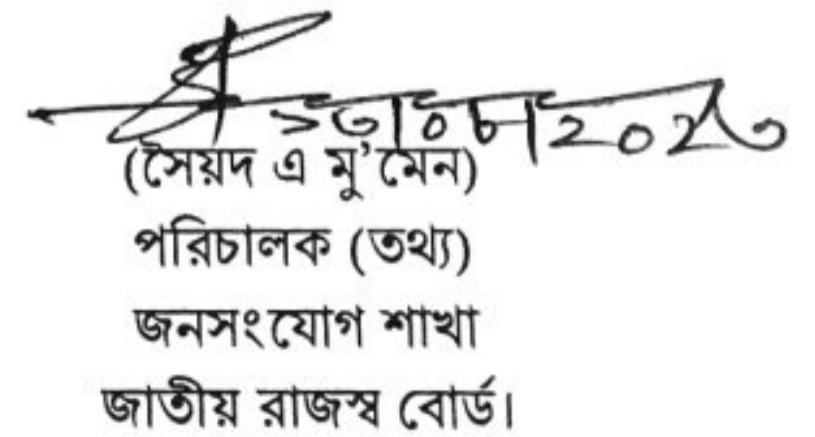 (সৈয়দ এ মু'মেন)
পরিচালক (তথ্য)
জনসংযোগ শাখা
জাতীয় রাজস্ব বোর্ড।